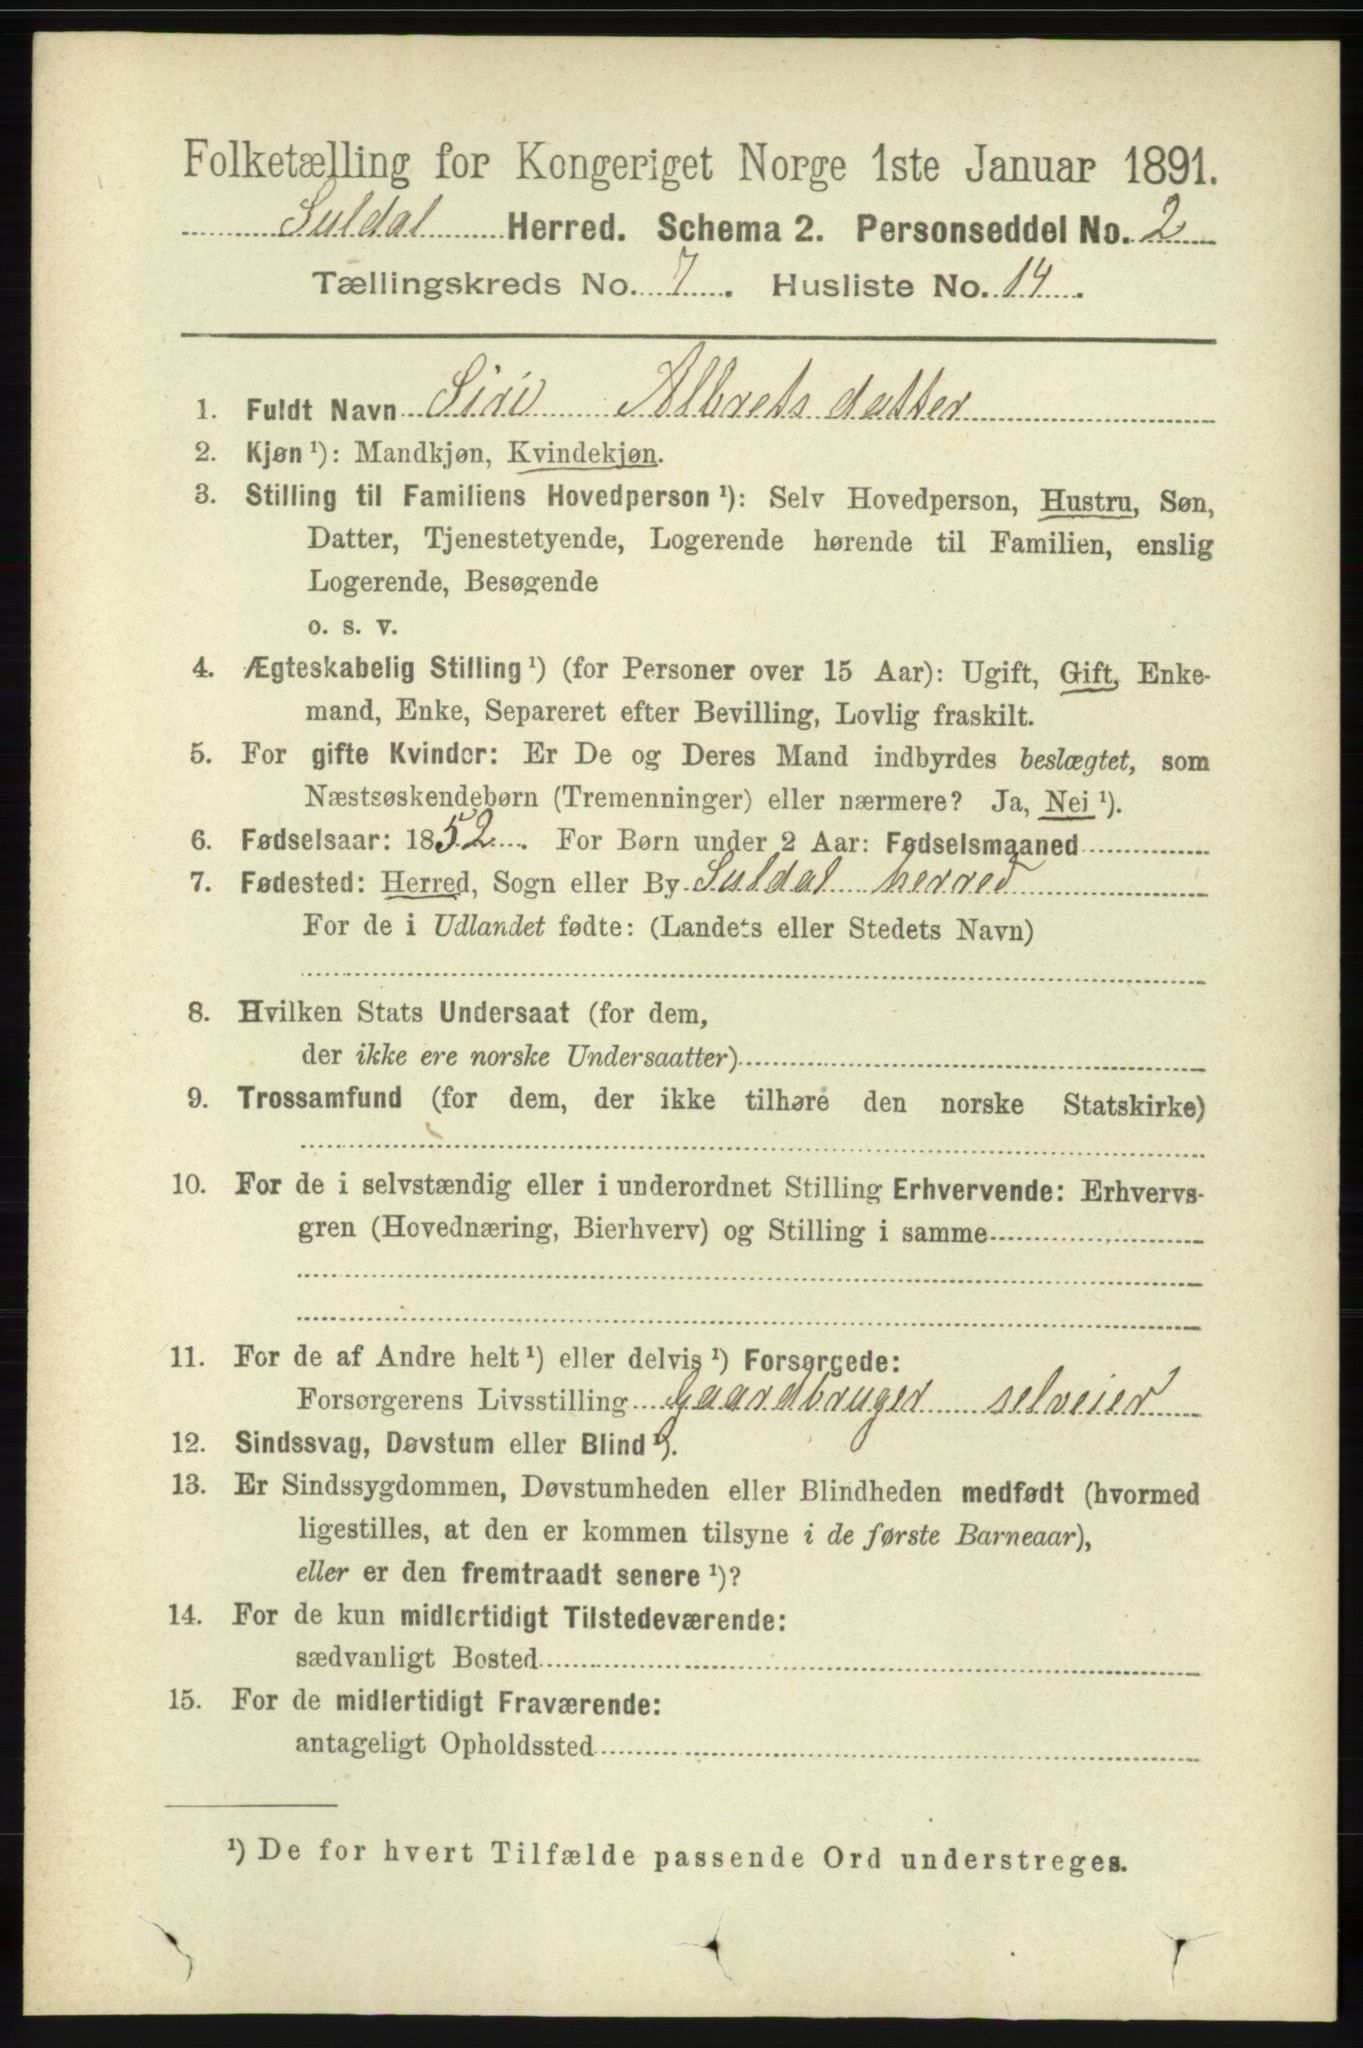 Folketælling for Kongeriget Norge 1ste Januar 1891.
Suldal Herred. Schema 2. Personseddel No. 2
Tællingskreds No. 7. Husliste No. 14.
1. Fuldt Navn Siri Albretsdatter
2. Kjøn ¹): Mandkjøn, Kvindekjøn.
3. Stilling til Familiens Hovedperson ¹): Selv Hovedperson, Hustru, Søn,
Datter, Tjenestetyende, Logerende hørende til Familien, enslig
Logerende, Besøgende
o. s. v.
4. Ægteskabelig Stilling ¹) (for Personer over 15 Aar): Ugift, Gift, Enke-
mand, Enke, Separeret efter Bevilling, Lovlig fraskilt.
5. For gifte Kvinder: Er De og Deres Mand indbyrdes beslægtet, som
Næstsøskendebørn (Tremenninger) eller nærmere? Ja, Nei ¹).
6. Fødselsaar: 1852. For Børn under 2 Aar: Fødselsmaaned
7. Fødested: Herred, Sogn eller By Suldal herred
For de i Udlandet fødte: (Landets eller Stedets Navn)
8. Hvilken Stats Undersaat (for dem,
der ikke ere norske Undersaatter)
9. Trossamfund (for dem, der ikke tilhøre den norske Statskirke)
10. For de i selvstændig eller i underordnet Stilling Erhvervende: Erhvervs-
gren (Hovednæring, Bierhverv) og Stilling i samme
11. For de af Andre helt ¹) eller delvis ¹) Forsørgede:
Forsørgerens Livsstilling Gaardbruger selveier
12. Sindssvag, Døvstum eller Blind ¹).
13. Er Sindssygdommen, Døvstumheden eller Blindheden medfødt (hvormed
ligestilles, at den er kommen tilsyne i de første Barneaar),
eller er den fremtraadt senere ¹)?
14. For de kun midlertidigt Tilstedeværende:
sædvanligt Bosted
15. For de midlertidigt Fraværende:
antageligt Opholdssted
¹) De for hvert Tilfælde passende Ord understreges.